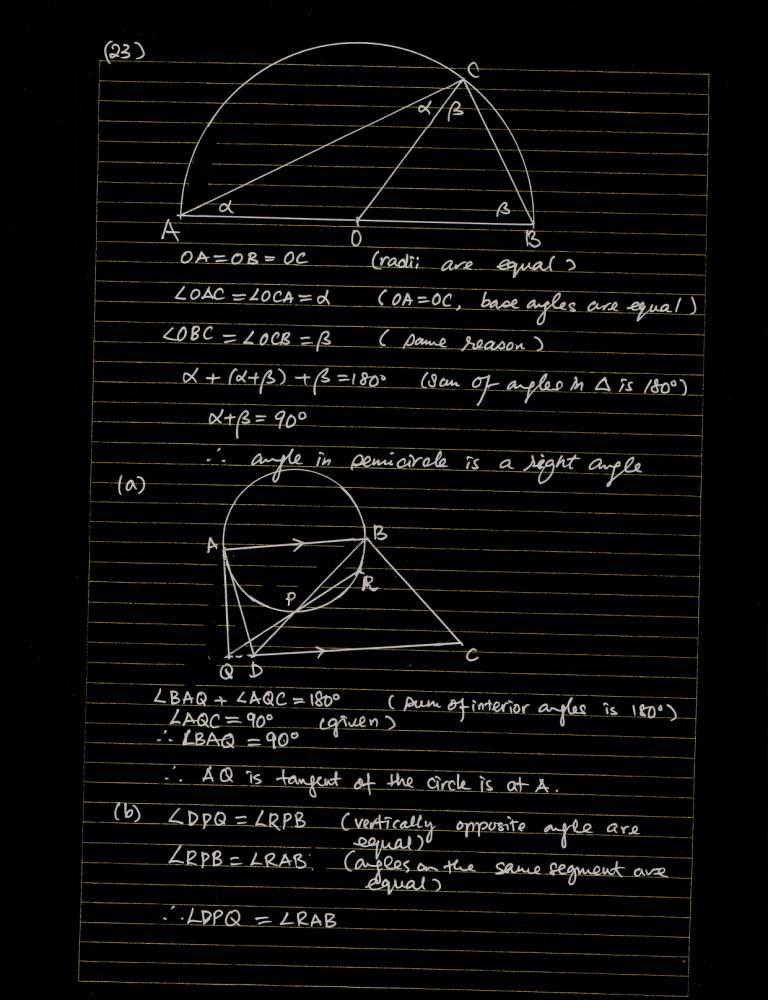 (23)
C
α β
α β
A O B
OA = OB = OC (radii are equal)
∠OAC = ∠OCA = α (OA = OC, base angles are equal)
∠OBC = ∠OCB = β (same reason)
α + (α+β) + β = 180° (sum of angles in Δ is 180°)
α+β = 90°
∴ angle in semicircle is a right angle
(a)
A B
R
P
Q D C
∠BAQ + ∠AQC = 180° (sum of interior angles is 180°)
∠AQC = 90° (given)
∴ ∠BAQ = 90°
∴ AQ is tangent of the circle is at A.
(b) ∠DPQ = ∠RPB (vertically opposite angle are
equal)
∠RPB = ∠RAB (angles on the same segment are
equal)
∴ ∠DPQ = ∠RAB